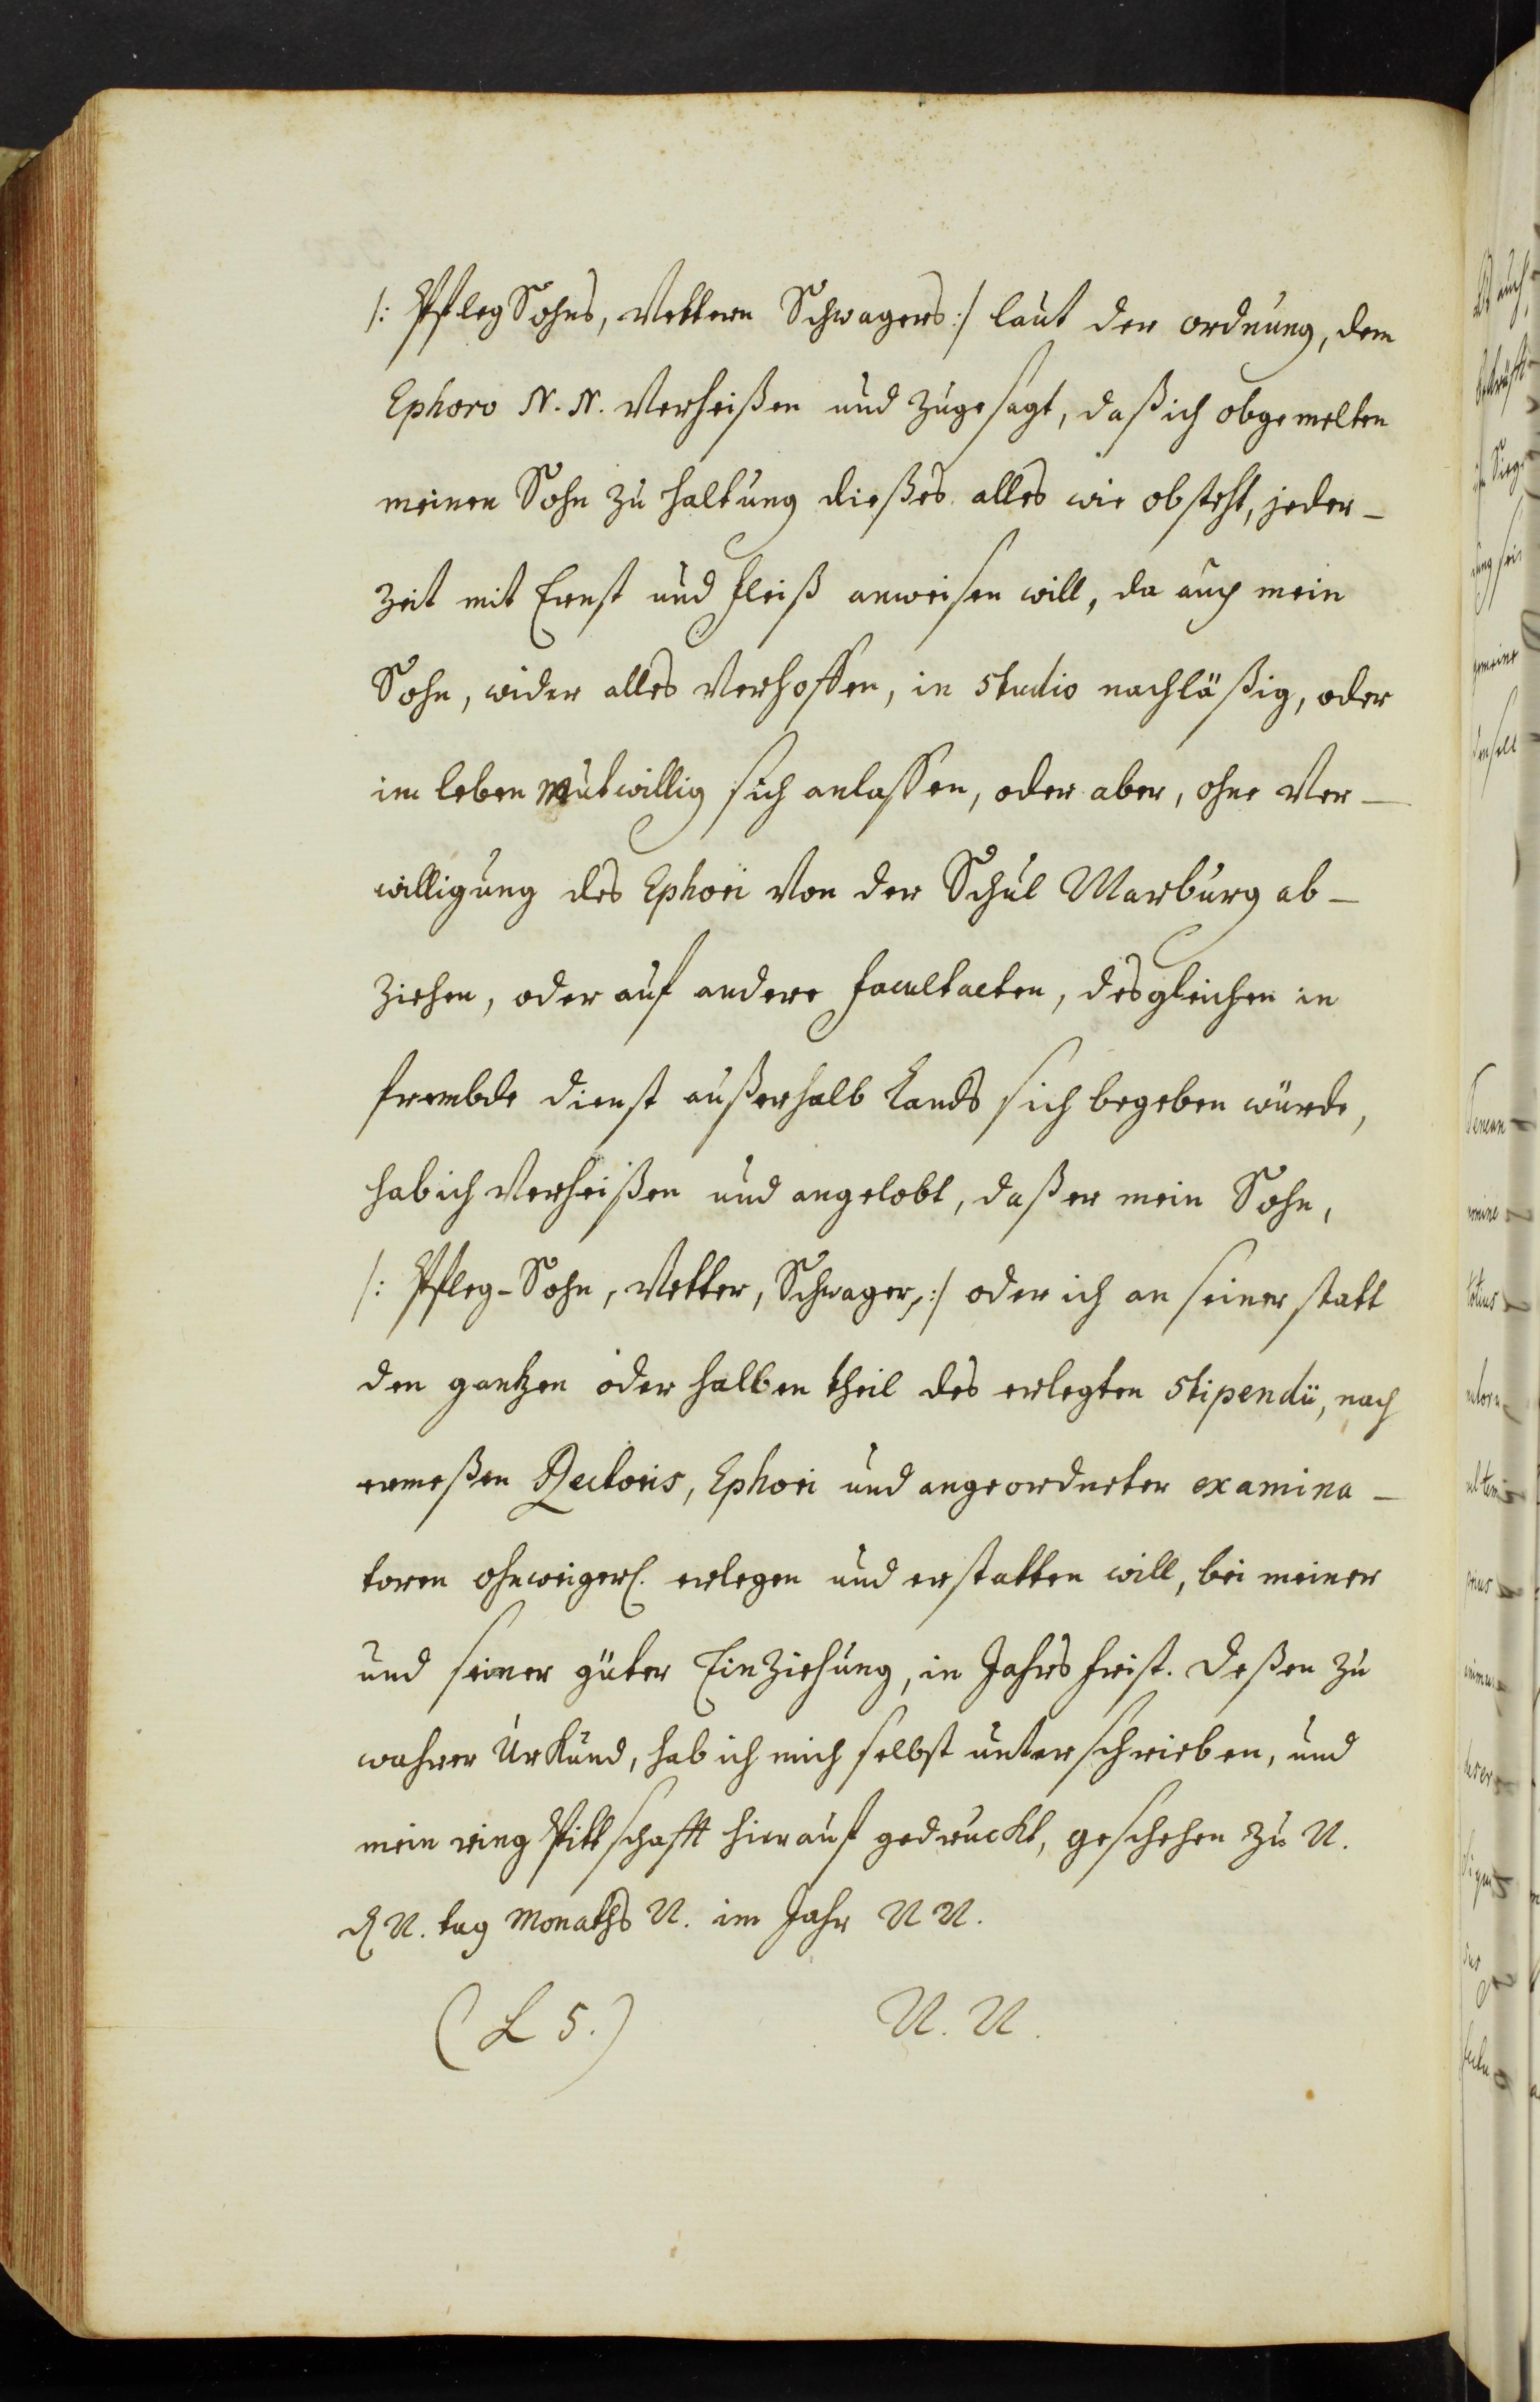 /: PflegSohns, Vettern Schwagers :/ laut der ordnung, dem
Ephoro N. N. Verheißen und zugesagt, daß ich obgemelten
meinen Sohn zu haltung dießes alles wie obsteht, jeder-
zeit mit Ernst und fleiß anweisen will, da auch mein
Sohn, wider alles Verhoffen, in studio nachläßig, oder
im leben mutwillig sich anlassen, oder aber, ohne Ver-
willigung des Ephori von der Schul Marburg ab-
ziehen, oder auf andere facultaeten, desgleichen in
frembde dienst außerhalb Lands sich begeben würde,
hab ich Verheißen und angelobt, daß er mein Sohn,
/: Pfleg-Sohn, Vetter, Schwager, :/ oder ich an seiner statt
den gantzen oder halben theil des erlegten stipendii, nach
ermeßen Rectoris, Ephori und angeordneter examina-
toren ohnweigerl. erlegen und erstatten will, bei meiner
und seiner güter Einziehung, in Jahrs frist. Deßen zu
wahrer Urkund, hab ich mich selbst unterschrieben, und
mein ring Pittschafft hierauf gedruckt, geschehen zu N.
d N. tag Monaths N. im Jahr N N.
(L S.) N. N.